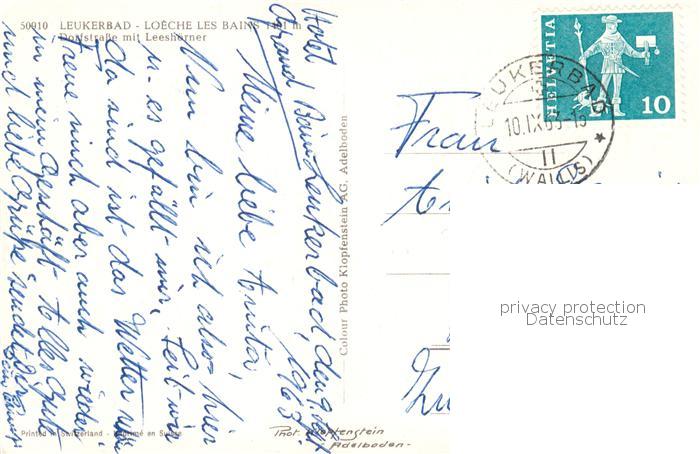 50910 LEUKERBAD - LOÈCHE LES BAINS 1411 m
Dorfstraße mit Leeshörner
Hotel
Grand Bain, Leukerbad den 9. Sept. 1963
Meine liebe Anita,
Nun bin ich also hier
u. es gefällt mir, seit wir
da sind ist das Wetter
freue mich aber auch wieder
in mein Geschäft. Alles gute
und liebe Grüße sendet Dir
Colour Photo Klopfenstein AG, Adelboden
Printed in Switzerland - Imprimé en Suisse
Phot. Klopfenstein
Adelboden
HELVETIA
10
LEUKERBAD
10.IX.63-13
II
(WALLIS)
Frau
privacy protection
Datenschutz